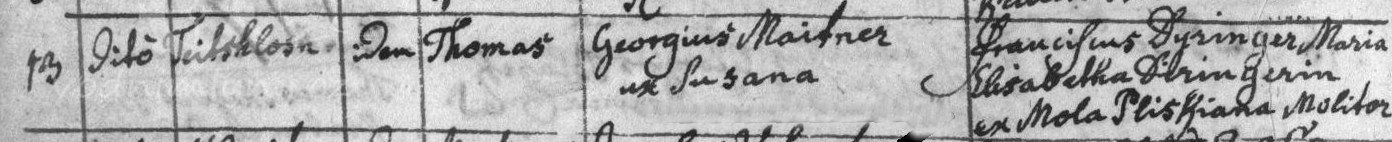 13 Ditô Teitshlosn :Dem Thomas Georgius Maitner Franciscus Dyringer Maria
ux Susana Elisabetha Diringerin
ex Mola Pliskiana Molitor